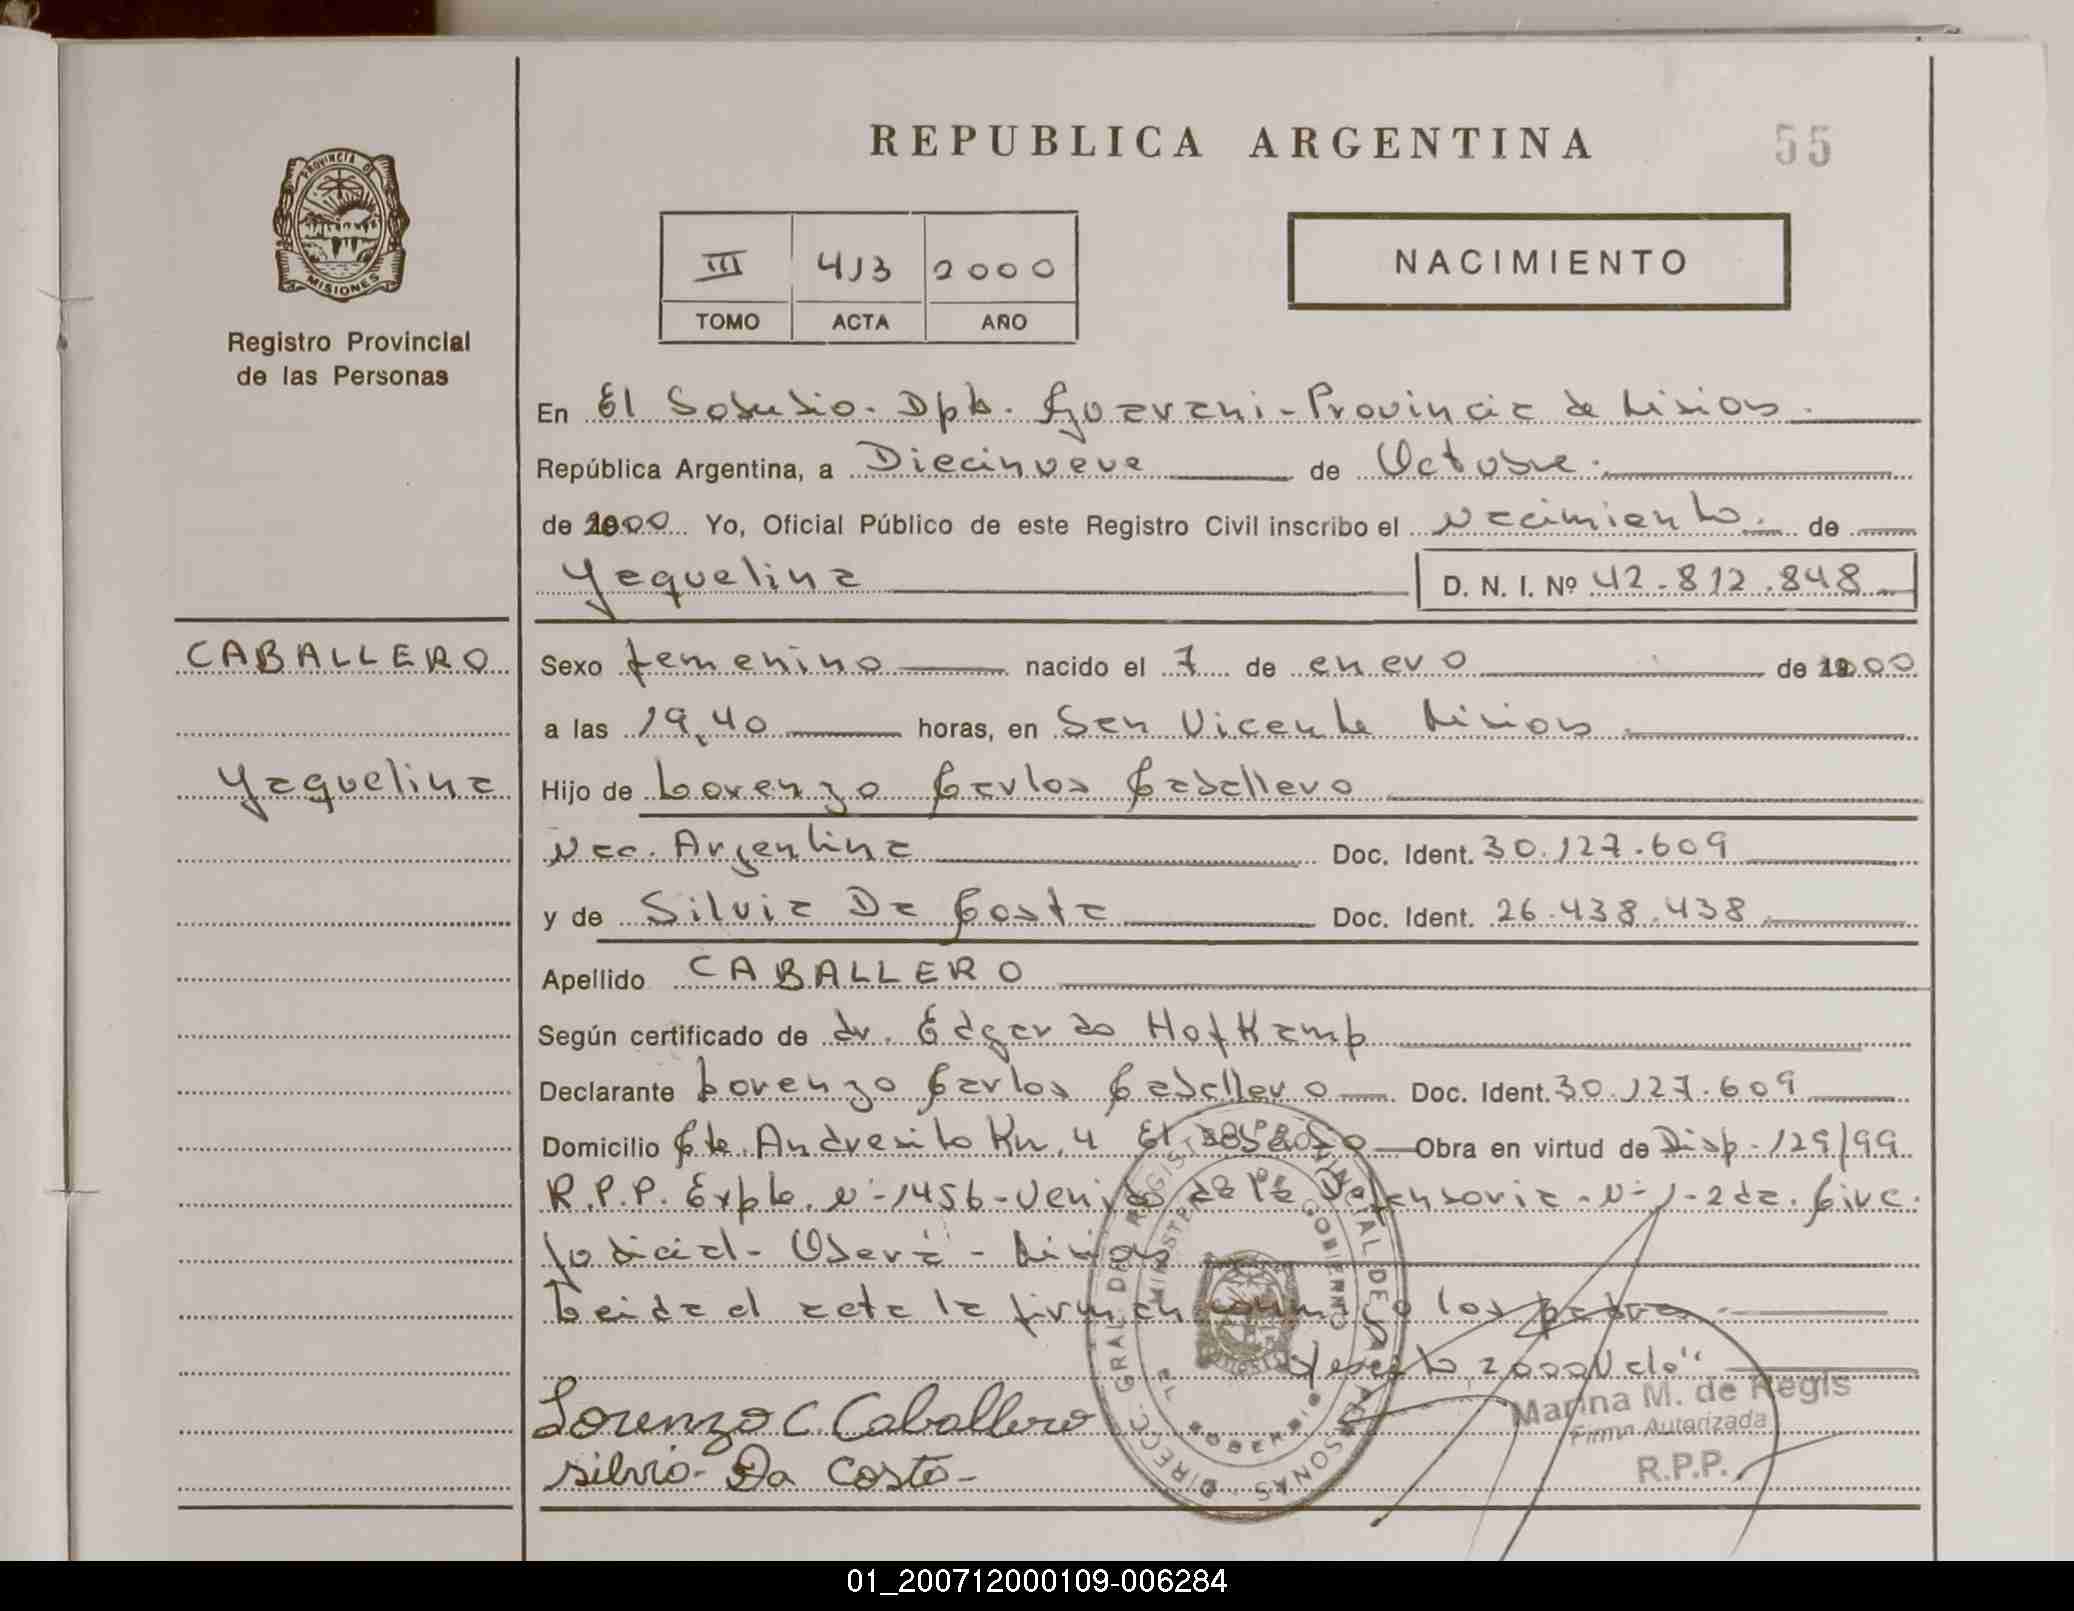 REPUBLICA ARGENTINA
55
PROVINCIA DE
MISIONES
Registro Provincial
de las Personas
III 413 2000
TOMO ACTA AÑO
NACIMIENTO
En El Soberbio. Dpto. Guarani - Provincia de Misiones.
República Argentina, a Diecinueve de Octubre.
de 2000 Yo, Oficial Público de este Registro Civil inscribo el nacimiento. de
Yaquelina D. N. I. Nº 42.812.848
CABALLERO
Yaquelina
Sexo femenino nacido el 7 de enero de 2000
a las 19,40 horas, en San Vicente Misiones
Hijo de Lorenzo Carlos Caballero
Nac. Argentina Doc. Ident. 30.127.609
y de Silvia Da Costa Doc. Ident. 26.438.438
Apellido CABALLERO
Según certificado de dr. Edgardo Hofkamp
Declarante Lorenzo Carlos Caballero Doc. Ident. 30.127.609
Domicilio Cte. Andresito Km. 4 El Soberbio Obra en virtud de Disp. 129/99
R.P.P. Expte. Nº 1456 - Venido de la Defensoria - Nº 1 - 2da. Circ.
Judicial - Oberá - Misiones
Leida el acta la firman conmigo los padres
2000 Vale"
Lorenzo C. Caballero
silvia - Da Costa -
DIRECC. GRAL. DEL REGISTRO PROVINCIAL DE LAS PERSONAS
MINISTERIO DE GOBIERNO
EL SOBERBIO
Marina M. de Regis
Firma Autorizada
R.P.P.
01_200712000109-006284